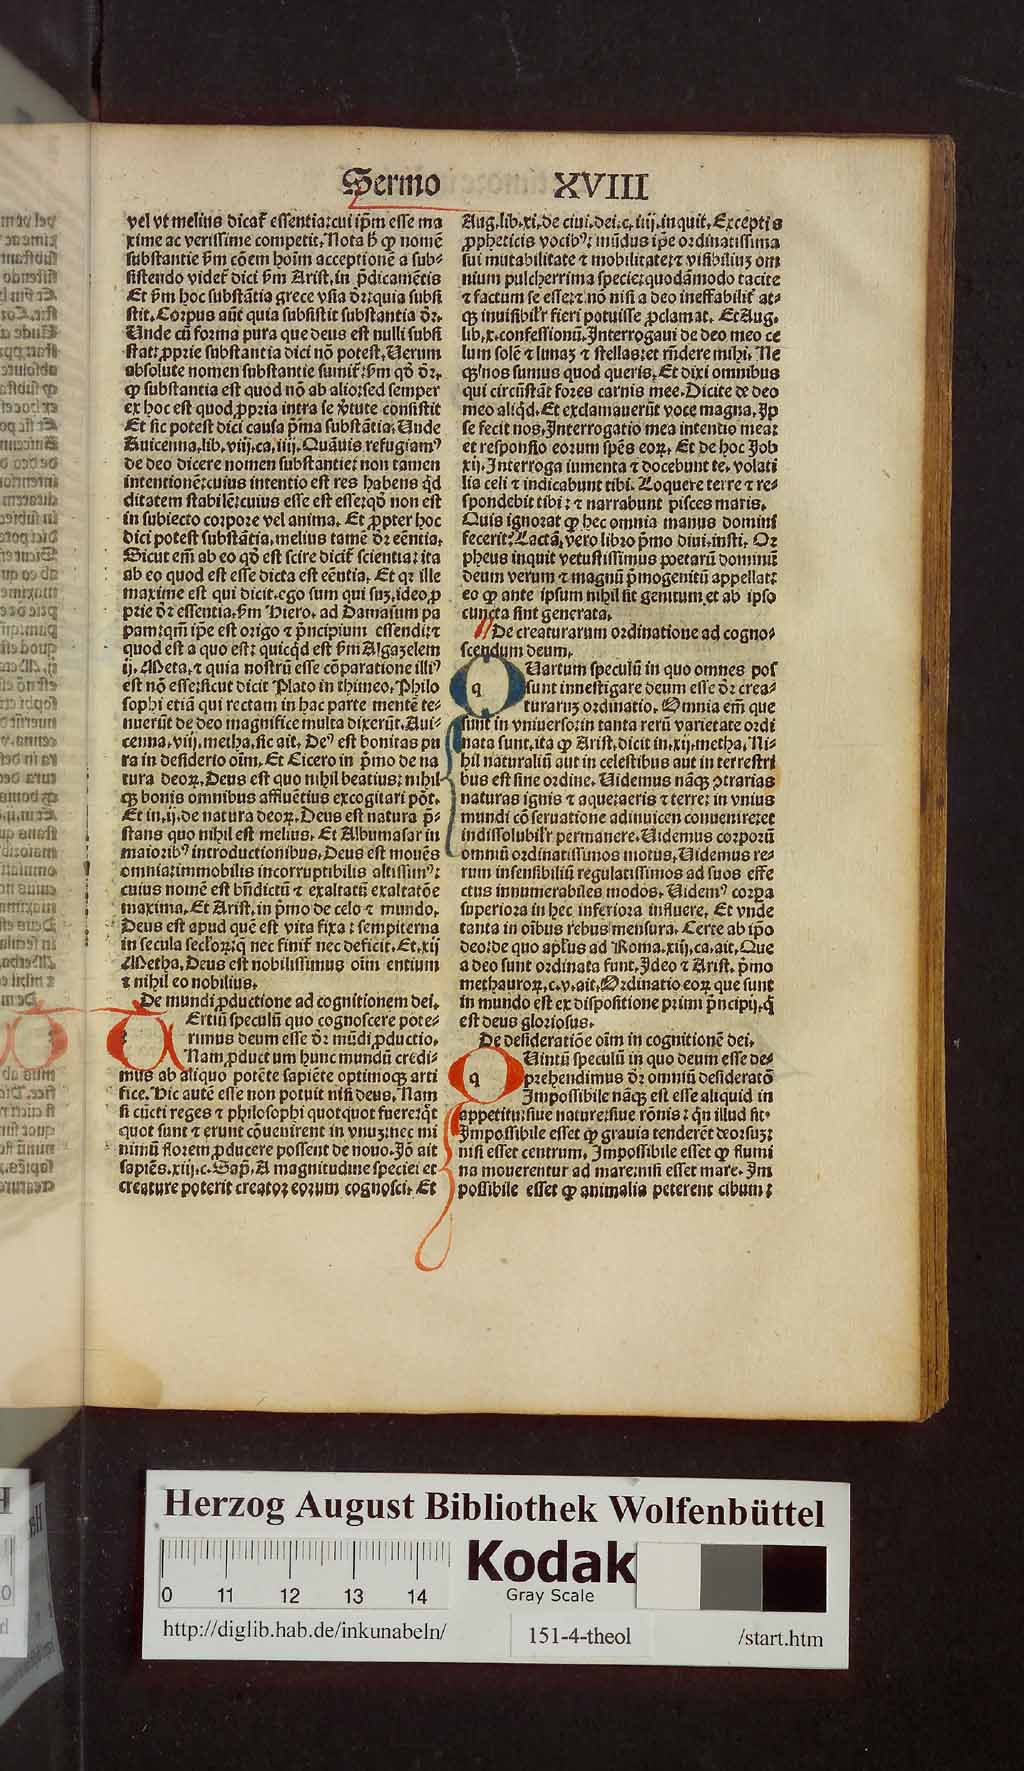 Sermo XVIII
vel vt melius dicat̃ essentia: cui ip̃m esse ma
xime ac verissime competit. Nota h̃ ꝙ nomẽ
substantie ẽm cõem hoĩm acceptionẽ a sub⸗
sistendo videt̃ dici ẽm Arist. in p̃dicamẽtis
Et ẽm hoc substãtia grece vsia dr̃: quia subsi
stit. Corpus aũt quia subsistit substantia dr̃.
Unde cũ forma pura que deus est nulli subsi
stat: ꝓprie substantia dici nõ potest. Uerum
absolute nomen substantie sumit̃: ẽm qd̃ dr̃.
ꝙ substantia est quod nõ ab alio: sed semper
ex hoc est quod ꝓpria intra se ṽtute consistit
Et sic potest dici causa p̃ma substãtia. Unde
Auicenna. lib. viij. ca. iiij. Quãuis refugiamꝰ
de deo dicere nomen substantie: non tamen
intentionẽ: cuius intentio est res habens q̃d
ditatem stabilẽ: cuius esse est esse: qd̃ non est
in subiecto corpore vel anima. Et ꝓpter hoc
dici potest substãtia, melius tamẽ dr̃ eẽntia.
Sicut em̃ ab eo qd̃ est scire dicit̃ scientia: ita
ab eo quod est esse dicta est eẽntia. Et qr ille
maxime est qui dicit. ego sum qui suꝫ. ideo ꝓ
prie dr̃ essentia. ẽm Hiero. ad Damasum pa
pam: qm̃ ip̃e est origo ⁊ p̃ncipium essendi: ⁊
quod est a quo est: quicq̃d est ẽm Algazelem
ij. Meta. ⁊ quia nostrũ esse cõparatione illiꝰ
est nõ esse: sicut dicit Plato in thimeo. Philo
sophi etiã qui rectam in hac parte mentẽ te⸗
nuerũt de deo magnifice multa dixerũt. Aui⸗
cenna. viij. metha. sic ait. Deꝰ est bonitas pu
ra in desiderio oĩm. Et Cicero in p̃mo de na
tura deoꝝ. Deus est quo nihil beatius: nihil
qꝫ bonis omnibus affluẽtius excogitari põt.
Et in. ij. de natura deoꝝ. Deus est natura p̃⸗
stans quo nihil est melius. Et Albumasar in
maioribꝰ introductionibus. Deus est mouẽs
omnia: immobilis incorruptibilis altissimꝰ:
cuius nomẽ est bñdictũ ⁊ exaltatũ exaltatõe
maxima. Et Arist. in p̃mo de celo ⁊ mundo.
Deus est apud quẽ est vita fixa: sempiterna
in secula secl̃oꝝ: q̃ nec finit̃ nec deficit. Et. xij
Metha. Deus est nobilissimus oĩm entium
⁊ nihil eo nobilius.
De mundi ꝓductione ad cognitionem dei.
Ertiũ speculũ quo cognoscere pote⸗
rimus deum esse dr̃ mũdi ꝓductio.
Nam ꝓductum hunc mundũ credi⸗
mus ab aliquo potẽte sapiẽte optimoqꝫ arti
fice. Hic autẽ esse non potuit nisi deus. Nam
si cũcti reges ⁊ philosophi quotquot fuere: q̃t
quot sunt ⁊ erunt cõuenirent in vnuꝫ: nec mi
nimũ florem ꝓducere possent de nouo. Jõ ait
sapiẽs. xiij. c. Sap̃. A magnitudine speciei et
creature poterit creator eorum cognosci. Et
Aug. lib. xi. de ciui. dei. c. iiij. inquit. Exceptis
ꝓpheticis vocibꝰ: mũdus ip̃e ordinatissima
sui mutabilitate ⁊ mobilitate: ⁊ visibiliuꝫ om
nium pulcherrima specie: quodãmodo tacite
⁊ factum se esse: ⁊ nõ nisi a deo ineffabilit̃ at⸗
qꝫ inuisibilr̃ fieri potuisse ꝓclamat. Et Aug.
lib. x. confessionũ. Interrogaui de deo meo ce
lum solẽ ⁊ lunaꝫ ⁊ stellas: et rñdere mihi. Ne
qꝫ nos sumus quod queris. Et dixi omnibus
qui circũstãt fores carnis mee. Dicite de deo
meo aliq̃d. Et exclamauerũt voce magna. Ip
se fecit nos. Interrogatio mea intentio mea:
et responsio eorum spẽs eoꝝ. Et de hoc Job
xij. Interroga iumenta ⁊ docebunt te. volati
lia celi ⁊ indicabunt tibi. Loquere terre ⁊ re⸗
spondebit tibi: ⁊ narrabunt pisces maris.
Quis ignorat ꝙ hec omnia manus domini
fecerit: Lactã. vero libro p̃mo diui. insti. Or
pheus inquit vetustissimus poetarũ dominũ
deum verum ⁊ magnũ p̃mogenitũ appellat:
eo ꝙ ante ipsum nihil sit genitum et ab ipso
cuncta sint generata.
De creaturarum ordinatione ad cogno⸗
scendum deum.
q Uartum speculũ in quo omnes pos
sunt inuestigare deum esse dr̃ crea⸗
turaruꝫ ordinatio. Omnia em̃ que
sunt in vniuerso: in tanta rerũ varietate ordi
nata sunt. ita ꝙ Arist. dicit in. xij. metha. Ni⸗
hil naturaliũ aut in celestibus aut in terrestri
bus est sine ordine. Uidemus nãqꝫ ꝯtrarias
naturas ignis ⁊ aque: aeris ⁊ terre: in vnius
mundi cõseruatione adinuicem conuenire: et
indissolubilr̃ permanere. Uidemus corporũ
omniũ ordinatissimos motus. Uidemus re⸗
rum insensibiliũ regulatissimos ad suos effe
ctus innumerabiles modos. Uidemꝰ corpora
superiora in hec inferiora influere. Et vnde
tanta in oĩbus rebus mensura. Certe ab ip̃o
deo: de quo apl̃us ad Roma. xiij. ca. ait. Que
a deo sunt ordinata sunt. Ideo ⁊ Arist. p̃mo
methauroꝝ. c. v. ait. Ordinatio eoꝝ que sunt
in mundo est ex dispositione primi p̃ncipij. q̃
est deus gloriosus.
De desideratiõe oĩm in cognitionẽ dei.
q Uintũ speculũ in quo deum esse de⸗
prehendimus dr̃ omniũ desideratõ
Impossibile nãqꝫ est esse aliquid in
appetitu: siue nature: siue rõnis: q̃n illud sit.
Impossibile esset ꝙ grauia tenderẽt deorsuꝫ:
nisi esset centrum. Impossibile esset ꝙ flumi
na mouerentur ad mare: nisi esset mare. Im
possibile esset ꝙ animalia peterent cibum:
Herzog August Bibliothek Wolfenbüttel
0 11 12 13 14
Kodak
Gray Scale
http://diglib.hab.de/inkunabeln/
151-4-theol
/start.htm